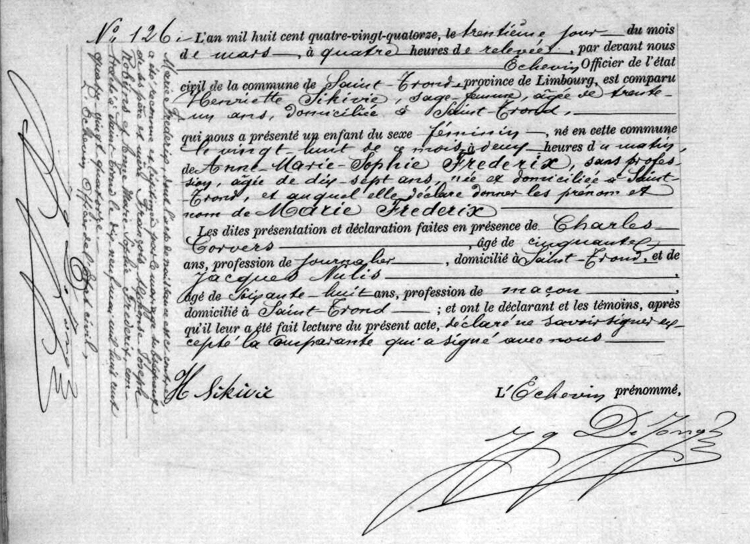 N° 126. L'an mil huit cent quatre-vingt-quatorze, le trentième jour du mois
de mars, à quatre heures de relevée, par devant nous
Echevin Officier de l'état
civil de la commune de Saint-Trond, province de Limbourg, est comparu
Henriette Sikivie, sage-femme, âgée de trente-
un ans, domiciliée à Saint-Trond,
qui nous a présenté un enfant du sexe féminin, né en cette commune
le vingt-huit de ce mois à deux heures du matin,
de Anne-Marie-Sophie Frederix, sans profes-
sion, âgée de dix-sept ans, née et domiciliée à Saint-
Trond, et auquel elle déclare donner les prénom et
nom de Marie Frederix
Les dites présentation et déclaration faites en présence de Charles
Corvers, âgé de cinquante
ans, profession de journalier, domicilié à Saint-Trond, et de
Jacques Nulis,
âgé de soixante-huit ans, profession de maçon,
domicilié à Saint-Trond; et ont le déclarant et les témoins, après
qu'il leur a été fait lecture du présent acte, déclaré ne savoir signer ex-
cepté la comparante qui a signé avec nous
H Sikivie L'Echevin prénommé,
Marie Frederix, dont l'acte de naissance est ci-contre,
a été reconnue et légitimée par le mariage de
Joseph
et Anne Marie Sophie Frederix
Trond le dix-neuf juin mil huit cent
quatre vingt quatorze.
L'Echevin Officier de l'Etat civil,